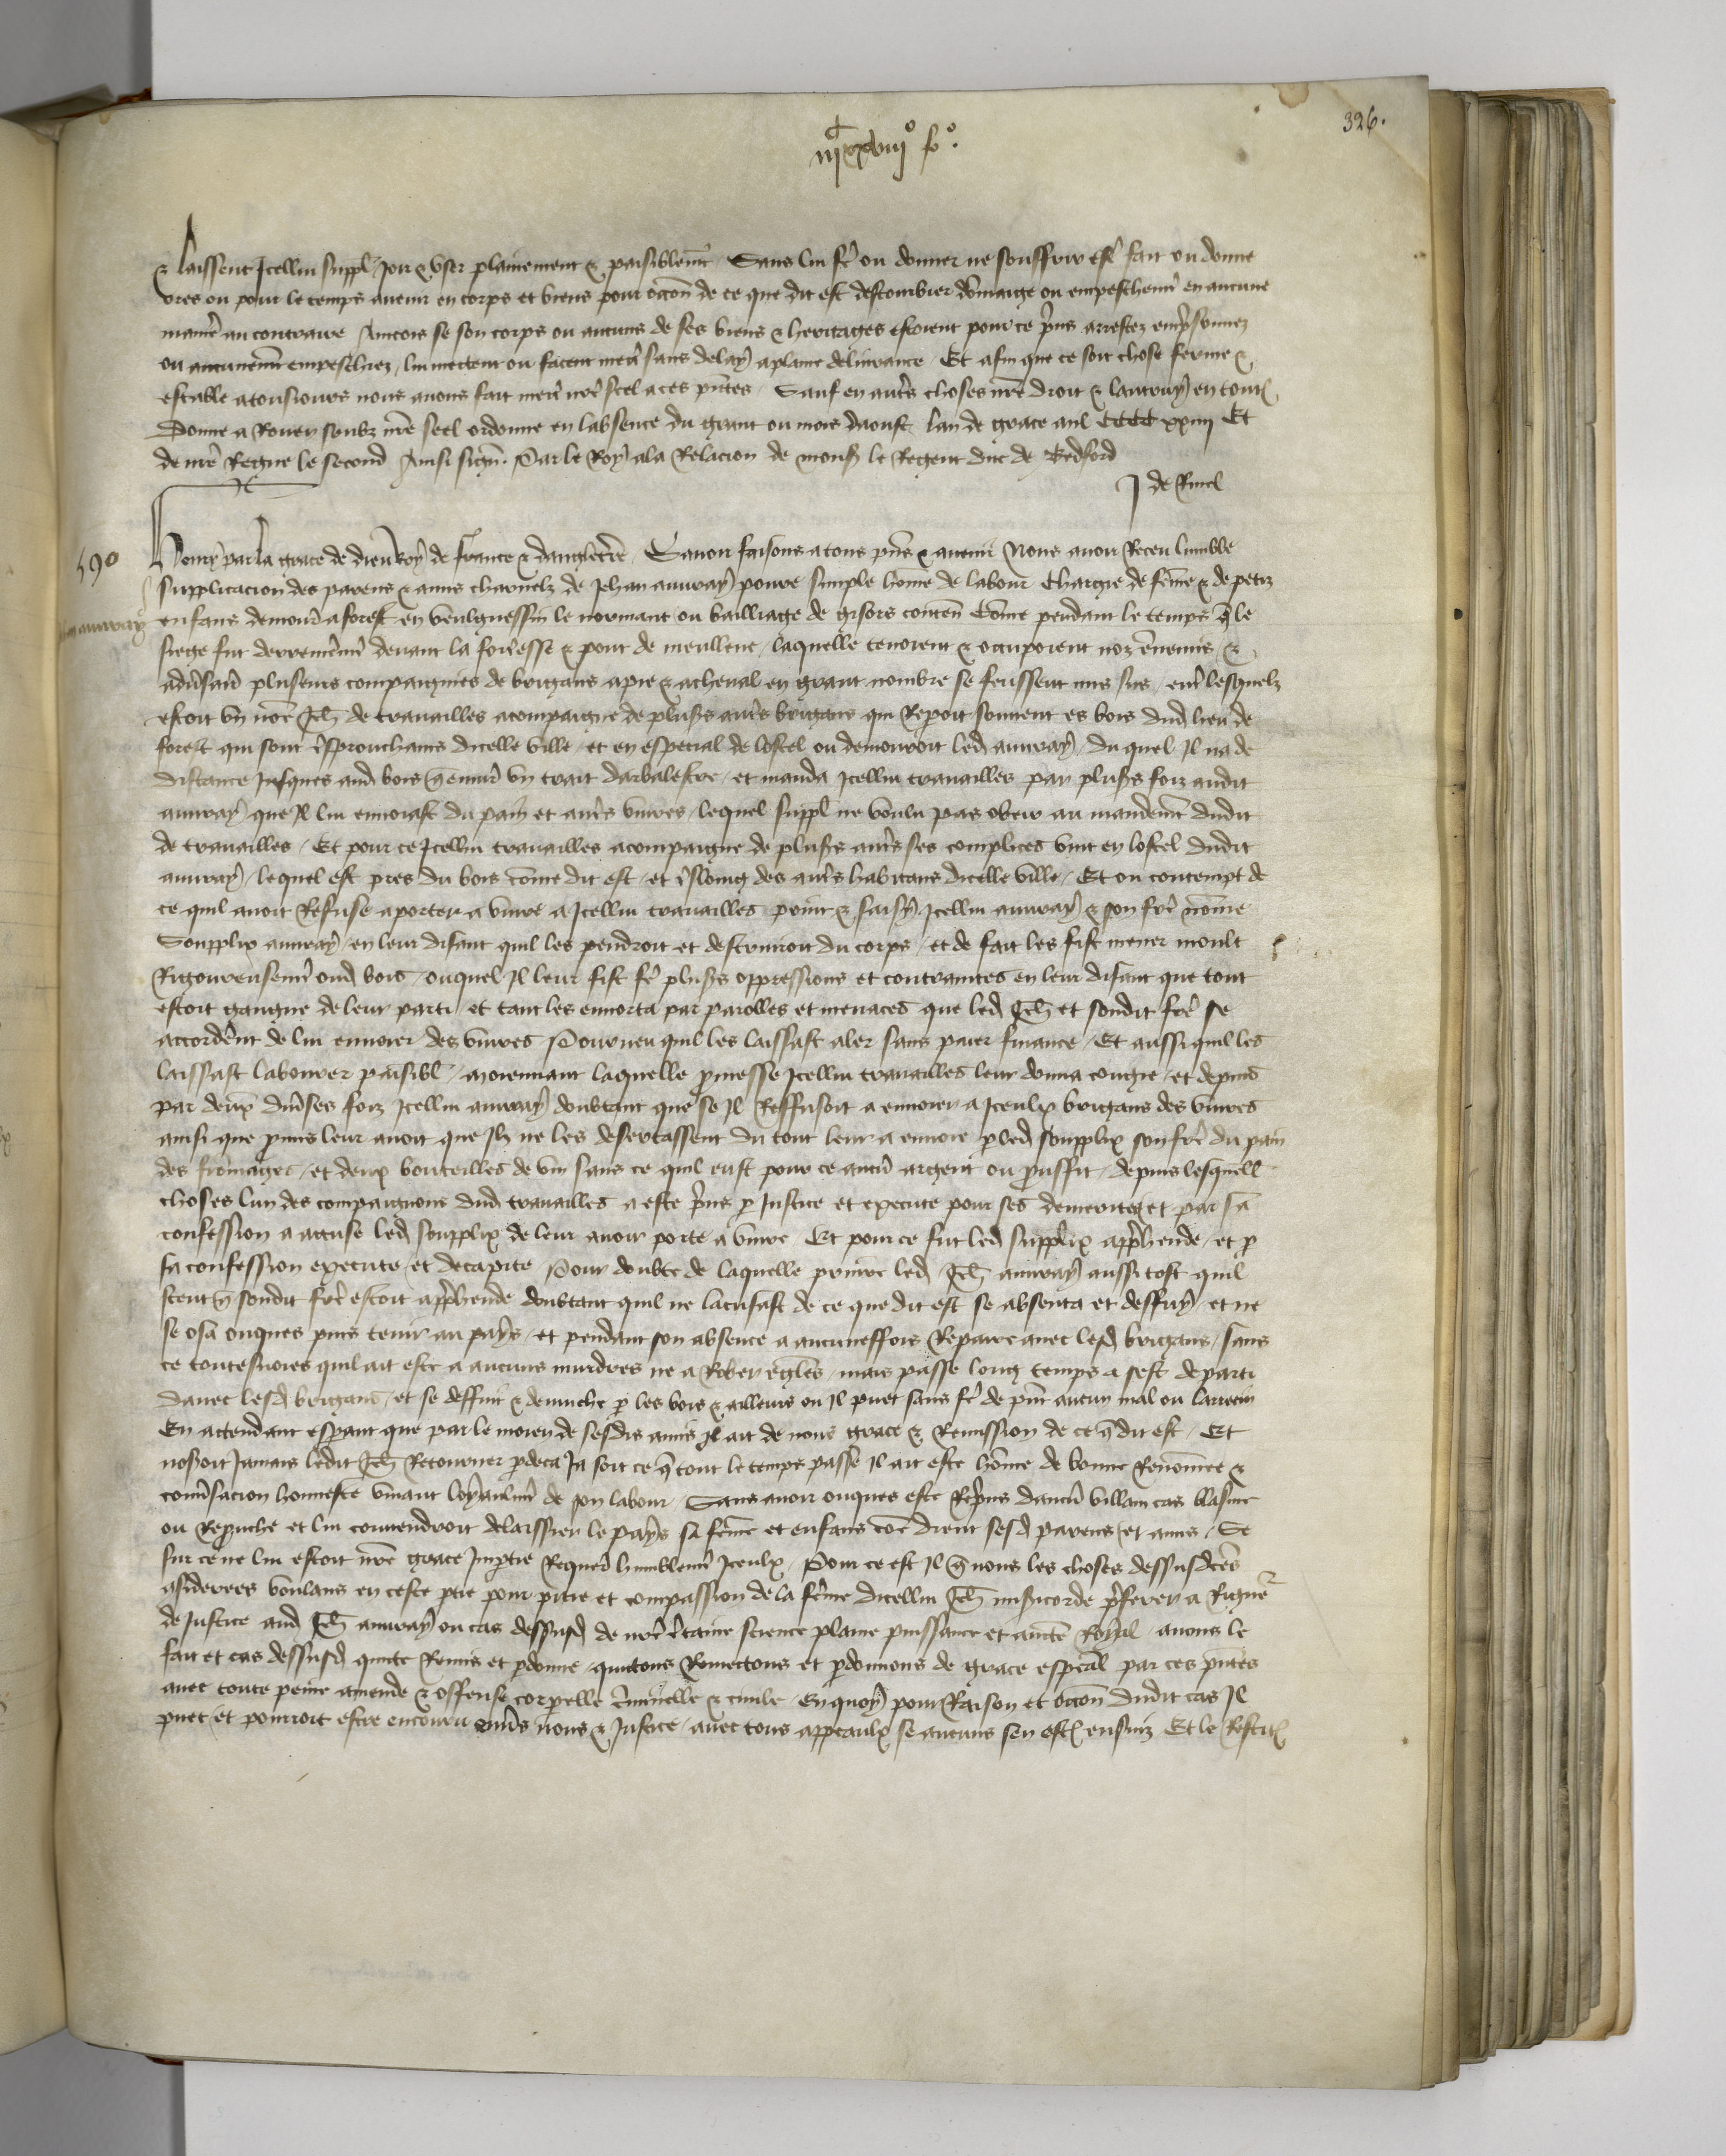 326.
iij^c xxviij^o f^o.
& laissent Icellui suppl Joir & vser plainement & paisiblem̃t Sans lui fẽ ou donner ne souffrir est̃ fait ou donne
ores ou pour le temps auenir en corps et biens pour occõn de ce que dit est destourbier dõmaige ou empeschem̃t en aucune
manĩe au contraire Aincois se son corps ou aucuns de ses biens & heritages estoient pour ce p̃ns arrestez emp̃sonnez
ou aucunem̃t empeschiez, lui mectent ou facent mect̃ sans delay aplaine deliurance Et afin que ce soit chose ferme &
estable atousiours nous auons fait mect̃ nr̃e scel aces p̃ntes Sauf en aut̃s choses nr̃e droit & lautruy en tout
Donne a Rouen soubz nr̃e seel ordonne en labsence du grant ou mois daoust lan de grace mil CCCC xxiiij Et
de nr̃e Regne le second Ainsi sign̄. Par le Roy ala Relacion de monsr̄ le Regent duc de Bedford
J de Rinel
190
Henry par la grace de dieu Roy de france & dangleterre Sauoir faisons atous p̃ns & auenir Nous auoir Receu lumble
supplicacion des parens & amis charnelz de Jehan auuray poure simple hõme de labour Chargie de fẽme & de petiz
auuray
enfans demour̃ a forest en veulguessin le normant ou bailliage de gisors conten̄ Cõme pendant le temps q̃ le
siege fut derrenierem̃t deuant la forteresse & pont de meullenc, laquelle tenoient & occupoient noz ennemis &
adũsair̃ pluseurs compaignies de brigans apie & acheual en grant nombre se feussent mis sus, entr̃ lesquelz
estoit vn nõe Jeh̃ de trauailles acompaigne de plus̃s aut̃s brigans qui Repoit souuent es bois dud lieu de
forest qui sont p̃s prouchains dicelle ville, et en especial de lostel ou demouroit led auuray, du quel Il na de
distance Jusques aud bois q̃ enuir̃ vn trait darbalestre, et manda Icellui trauailles par plus̃s foiz audit
auuray que Il lui enuoiast du pain et aut̃s viures, lequel suppl ne voulu pas obeir au mandem̃t dudit
de trauailles, Et pour ce Icellui trauailles acompaigne de plus̃s aut̃s ses complices vint en lostel dudit
auuray, lequel est pres du bois cõme dit est, et p̃s loing des aut̃s habitans dicelle ville, Et ou contempt de
ce quil auoit Refuse aporter a viure a Icellui trauailles print & saisy Icellui auuray & son frẽ nõme
Soupplix auuray, en leur disant quil les pendroit et destruiroit du corps, et de fait les fist mener moult
Rigoureusem̃t oud bois, ouquel Il leur fist fẽ plus̃s oppressions et contraintes en leur disant que tout
estoit gaingne de leur parti, et tant les enhorta par parolles et menaces que led Jeh̃ et sondit frẽ se
accorder̃t de lui enuoier des viures Pourueu quil les laissast aler sans paier finance, Et aussi quil les
laissast labourer paisibl̃, moiennant laquelle p̃messe Icellui trauailles leur donna congie, et depuis
par deux diũses foiz Icellui auuray doubtant que se Il Reffusoit a enuoier a Iceulx brigans des viures
ainsi que p̃mis leur auoit que Ilz ne les desertassent du tout leur a enuoie p̃ led soupplix son frẽ du pain
des fromages, et deux bouteilles de vin sans ce quil eust pour ce aucũ argent ou p̃uffit, depuis lesquell
choses lun des compaignons dud trauailles a este p̃ns p̃ Justice et execute pour ses demerites et par sa
confession a accuse led soupplix de leur auoir porte a viure Et pour ce fut led supplix app̃hende, et p̃
sa confession execute, et decapite Pour doubte de laquelle prinse led Jeh̃ auuray aussi tost quil
sceut q̃ sondit frẽ estoit app̃hende doubtant quil ne lacusast de ce que dit est se absenta et deffuy, et ne
se osa onques puis tenir au pays, et pendant son absence a aucuneffois Repaire auec lesd brigans, sans
ce toutesuoies quil ait este a aucuns murdres ne a Rober eglĩs, mais passe long temps a sest departi
dauec lesd brigans, et se deffuit & demuche p̃ les bois & ailleurs ou Il puet sans fẽ de p̃nt aucun mal ou larrecin
En attendant esp̃ant que par le moien de sesdis amis Il ait de nous grace & Remission de ce q̃ dit est, Et
noseroit Jamais ledit Jeh̃ Retourner p̃ deca Ja soit ce q̃ tout le temps passe Il ait este hõme de bonne Renommee &
conũsacion honneste viuant loyaulm̃t de son labour, Sans auoir onques este Rep̃ns daucũ villain cas blasme
ou Rep̃uche et lui conuendroit delaissier le pays sa fẽme et enfans cõe dient sesd parens et amis, Se
sur ce ne lui estoit nr̃e grace Imp̃tie Requer̃t humblem̃t Iceulx, Pour ce est Il q̃ nous les choses dessusdctẽs
ɔsiderees voulans en ceste p̃tie pour pitie et compassion de la fẽme dicellui Jeh̃ mis̃icorde p̃ferer a Rigueur
de Justice aud Jeh̃ auuray ou cas dessusd de nr̃e c̃taine science plaine puissance et auct̃e Royal auons le
fait et cas dessusd quicte Remis et p̃donne, quictons Remectons et p̃donnons de grace esp̃al par ces p̃ntes
auec toute peine amende & offense corp̃elle c̃iminelle & ciuile, En quoy pour Raison et occõn dudit cas Il
puet et pourroit estre encouru enũs nous & Justice, auec tous appeaulx se aucuns sen est ensuiz Et le Restit